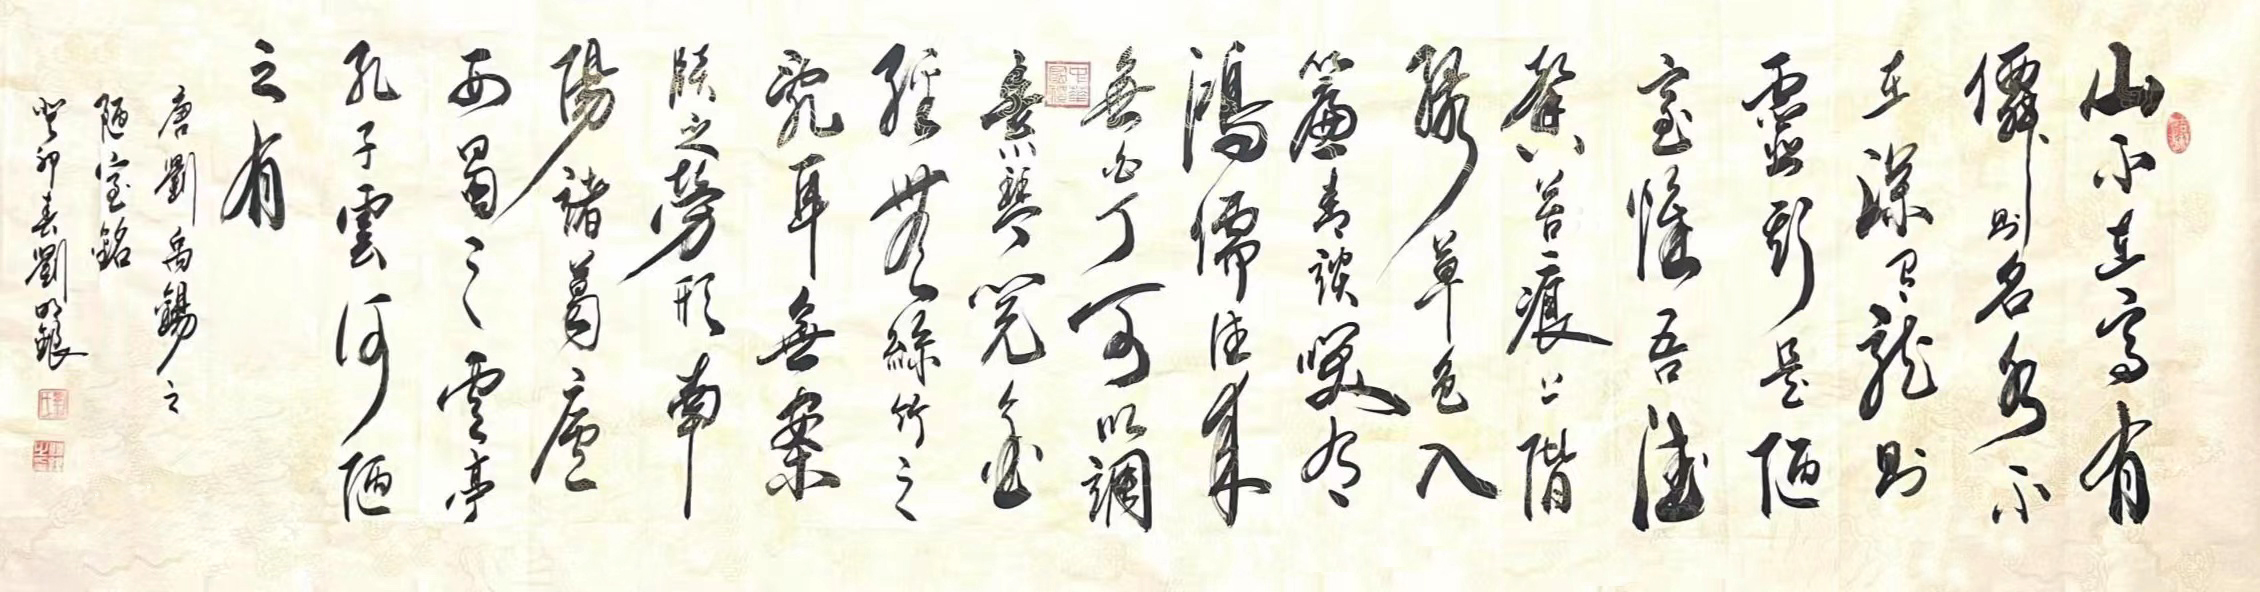 山不在高有
僊則名水不
在深有龍則
靈斯是陋
室惟吾德
馨苔痕上階
綠草色入
簾青談笑有
鴻儒往來
無白丁可以調
素琴閱金
經無絲竹之
亂耳無案
牘之勞形南
陽諸葛廬
西蜀子雲亭
孔子雲何陋
之有
唐劉禹錫之
陋室銘
癸卯春劉明銀